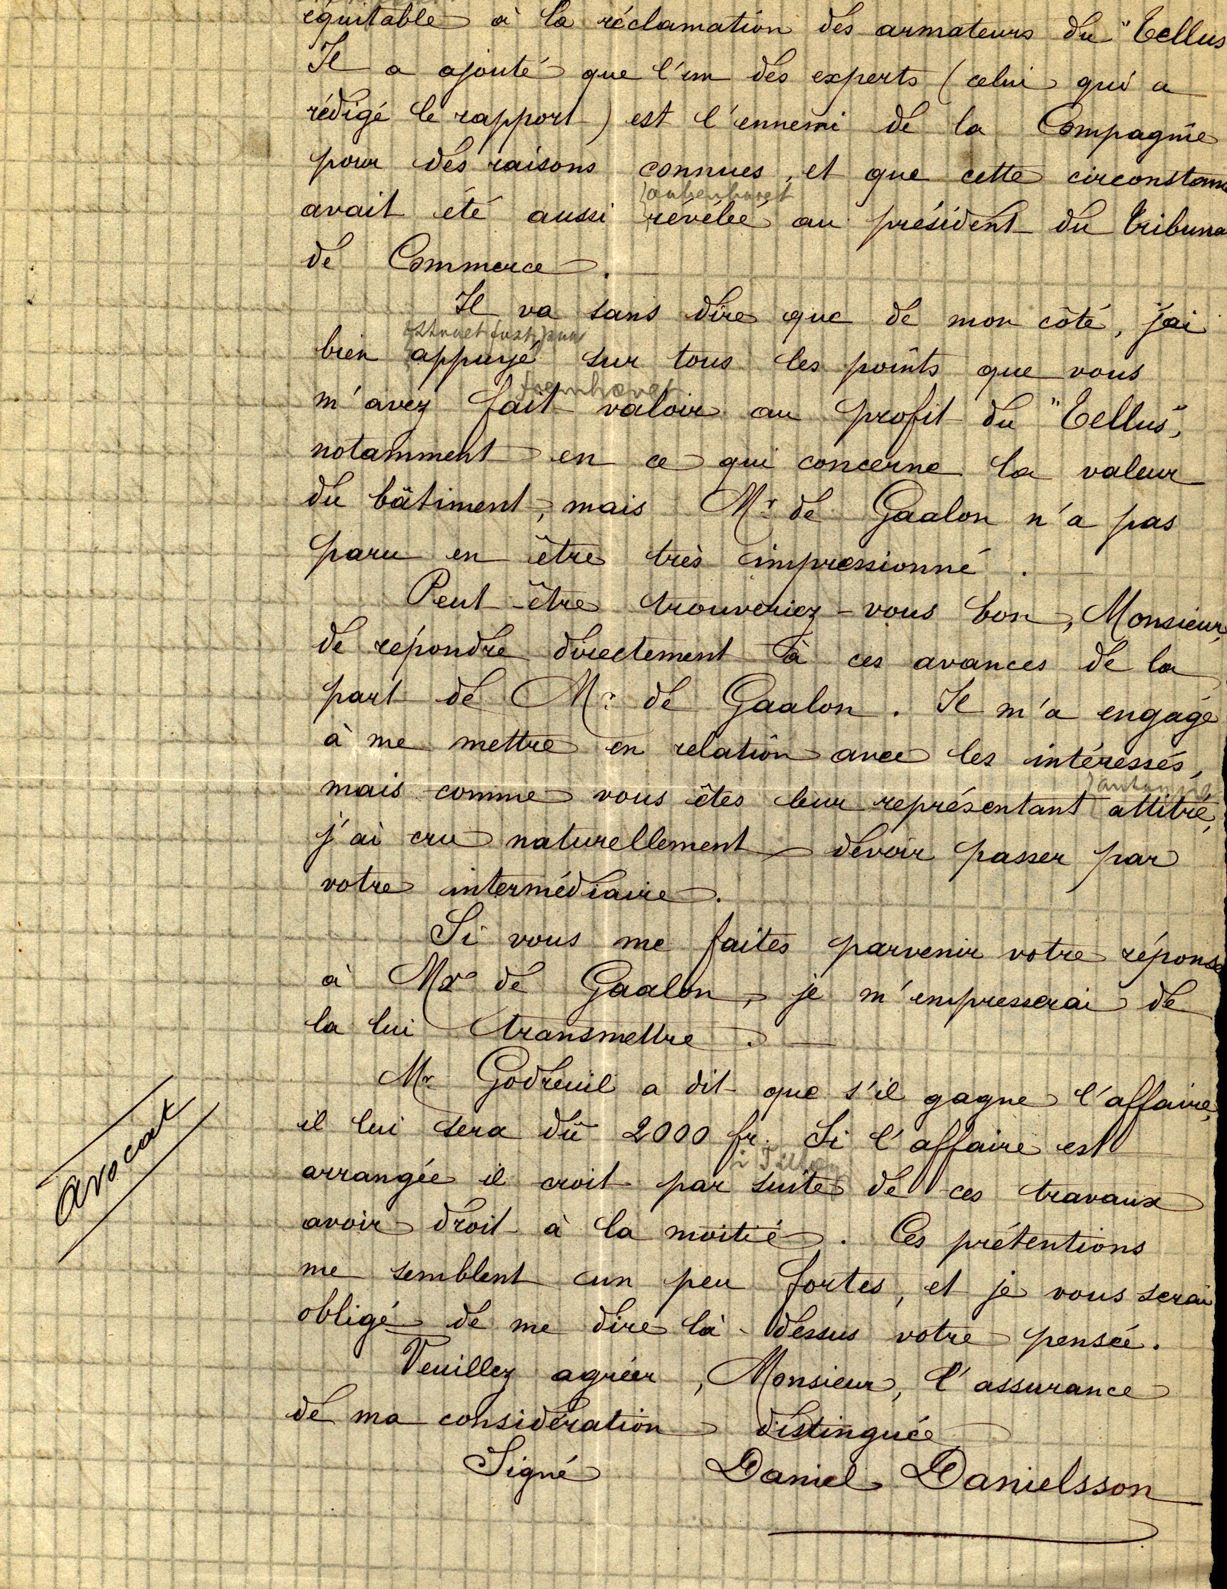 équitable à la réclamation des armateurs du "Tellus
Il a ajouté que l'un des experts (celui qui a
rédigé le rapport) est l'ennemi de la Compagnie
pour des raisons connues, et que cette circonstan
avait été aussi révélée au président du Tribuna
de Commerce.
Il va sans dire que de mon côté, j'ai
bien appuyé sur tous les points que vous
framhævet
m'avez fait valoir au profit du "Tellus",
notamment en ce qui concerne la valeur
du bâtiment, mais Mr. de Gaalon n'a pas
paru en être très impressionné.
Peut-être trouveriez-vous bon, Monsieur,
de répondre directement à ces avances de la
part de Mr. de Gaalon. Il m'a engagé
à me mettre en relation avec les intéressés,
mais comme vous êtes leur représentant attitré,
j'ai cru naturellement devoir passer par
votre intermédiaire.
Si vous me faites parvenir votre réponse
à Mr de Gaalon, je m'empresserai de
la lui transmettre. —
avocat
Mr Godreuil a dit que s'il gagne l'affaire,
il lui sera dû 2000 fr. Si l'affaire est
arrangée il croit par suite de ces travaux
avoir droit à la moitié. Ces prétentions
me semblent un peu fortes, et je vous serai
obligé de me dire là-dessus votre pensée.
Veuillez agréer, Monsieur, l'assurance
de ma considération distinguée
Signé Daniel Danielsson